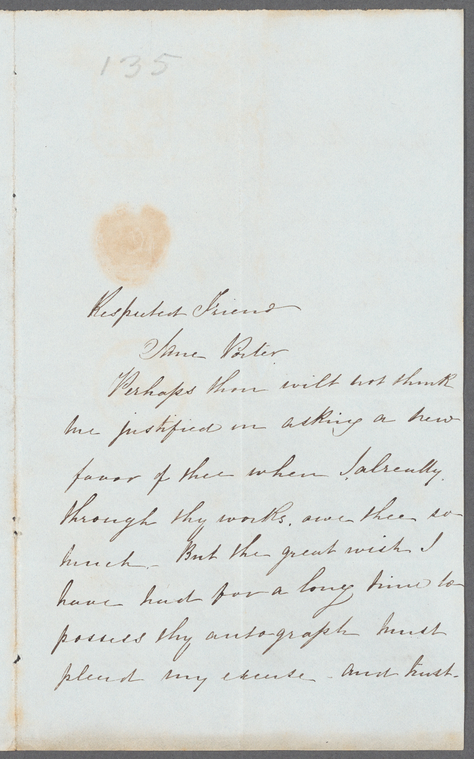 135
Respected Friend
Jane Porter
Perhaps thou wilt not think
me justified in asking a new
favor of thee when I, already,
through thy works, owe thee so
much. - But the great wish I
have had for a long time to
possess thy autograph must
plead my excuse - and trust -